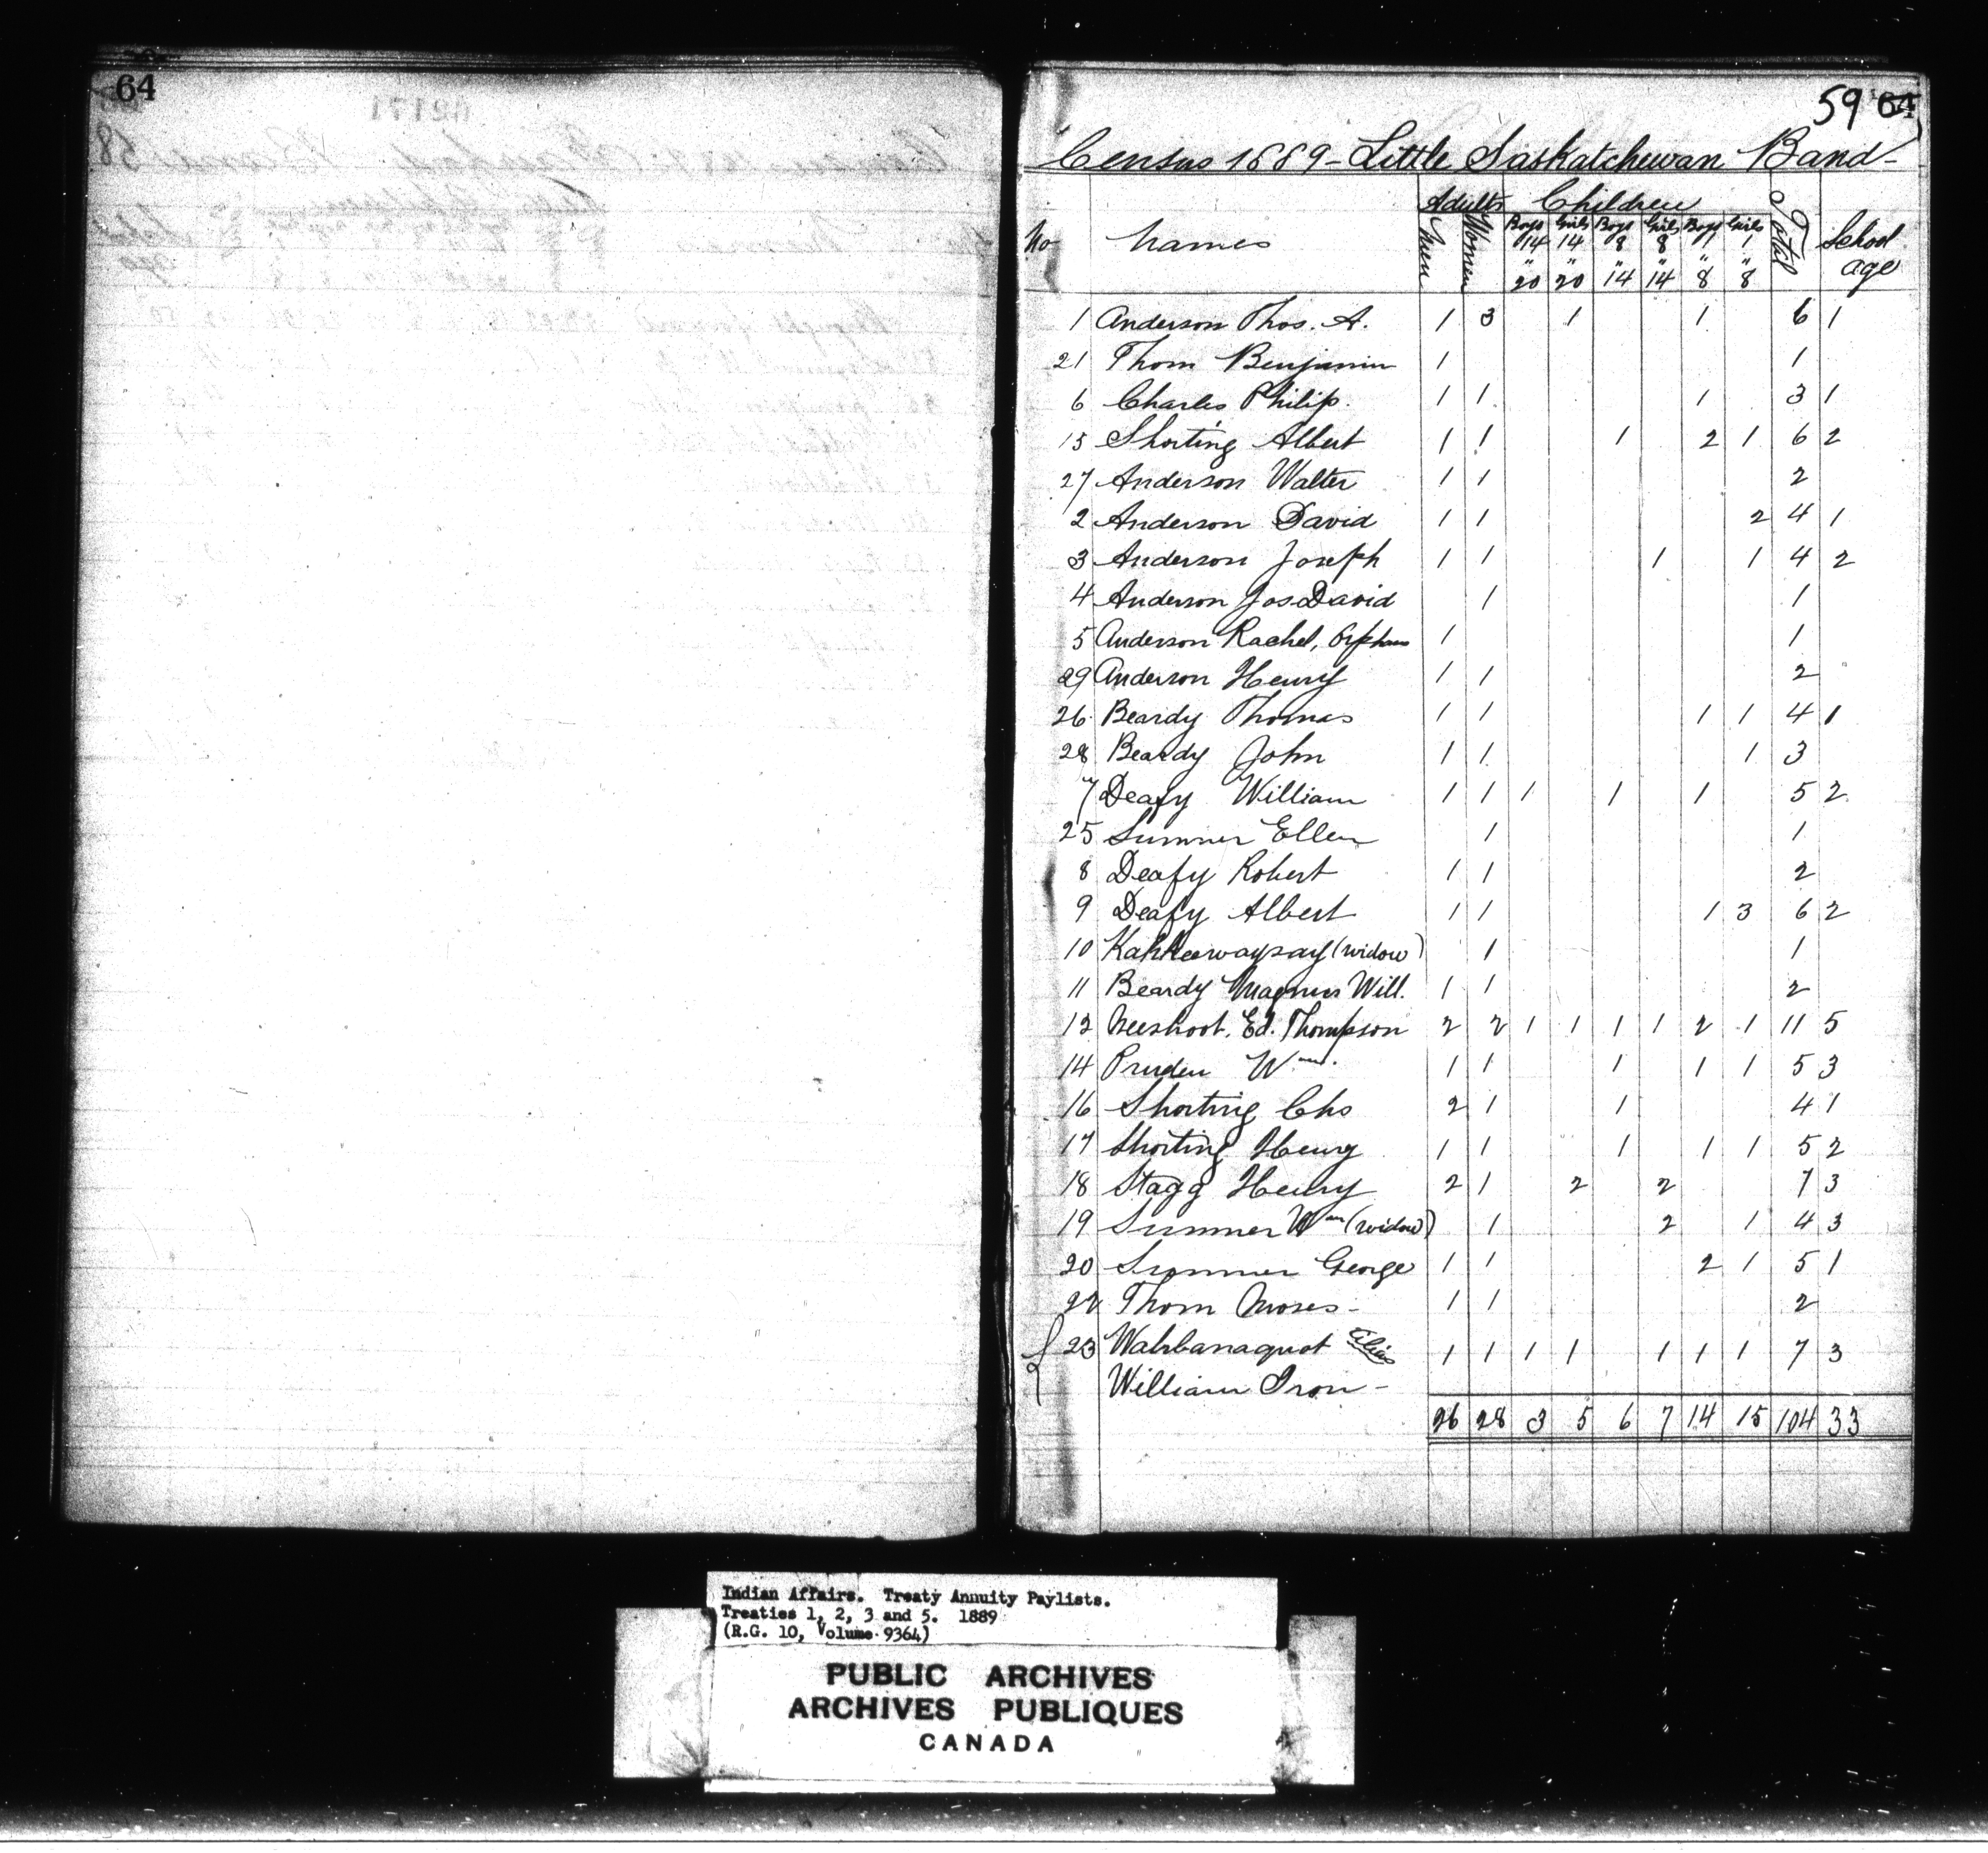 64
59 64
Census 1889 - Little Saskatchewan Band -
No Names Adults Children Total School age
Men Women Boys 14 " 20 Girls 14 " 20 Boys 8 " 14 Girls 8 " 14 Boys 1 " 8 Girls 1 " 8
1 Anderson Thos. A. 1 3 1 1 6 1
21 Thom Benjamin 1 1
6 Charles Philip. 1 1 1 3 1
15 Shorting Albert 1 1 1 2 1 6 2
27 Anderson Walter 1 1 2
2 Anderson David 1 1 2 4 1
3 Anderson Joseph 1 1 1 1 4 2
4 Anderson Jos David 1 1
5 Anderson Rachel, Orphan 1 1
29 Anderson Henry 1 1 2
26 Beardy Thomas 1 1 1 1 4 1
28 Beardy John 1 1 1 3
7 Deafy William 1 1 1 1 1 5 2
25 Sumner Ellen 1 1
8 Deafy Robert 1 1 2
9 Deafy Albert 1 1 1 3 6 2
10 (widow) 1 1
11 Beardy Magnus Will. 1 1 2
12 Ed. Thompson 2 2 1 1 1 1 2 1 11 5
14 Pruden Wm. 1 1 1 1 1 5 3
16 Shorting Chs 2 1 1 4 1
17 Shorting Henry 1 1 1 1 1 5 2
18 Stagg Henry 2 1 2 2 7 3
19 Sumner Wm (widow) 1 2 1 4 3
20 Sumner George 1 1 2 1 5 1
22 Thom Moses - 1 1 2
23 Wahbanaquot alias 1 1 1 1 1 1 1 7 3
William Iron -
26 28 3 5 6 7 14 15 104 33
Indian Affairs. Treaty Annuity Paylists.
Treaties 1, 2, 3 and 5. 1889
(R.G. 10, Volume 9364)
PUBLIC ARCHIVES
ARCHIVES PUBLIQUES
CANADA